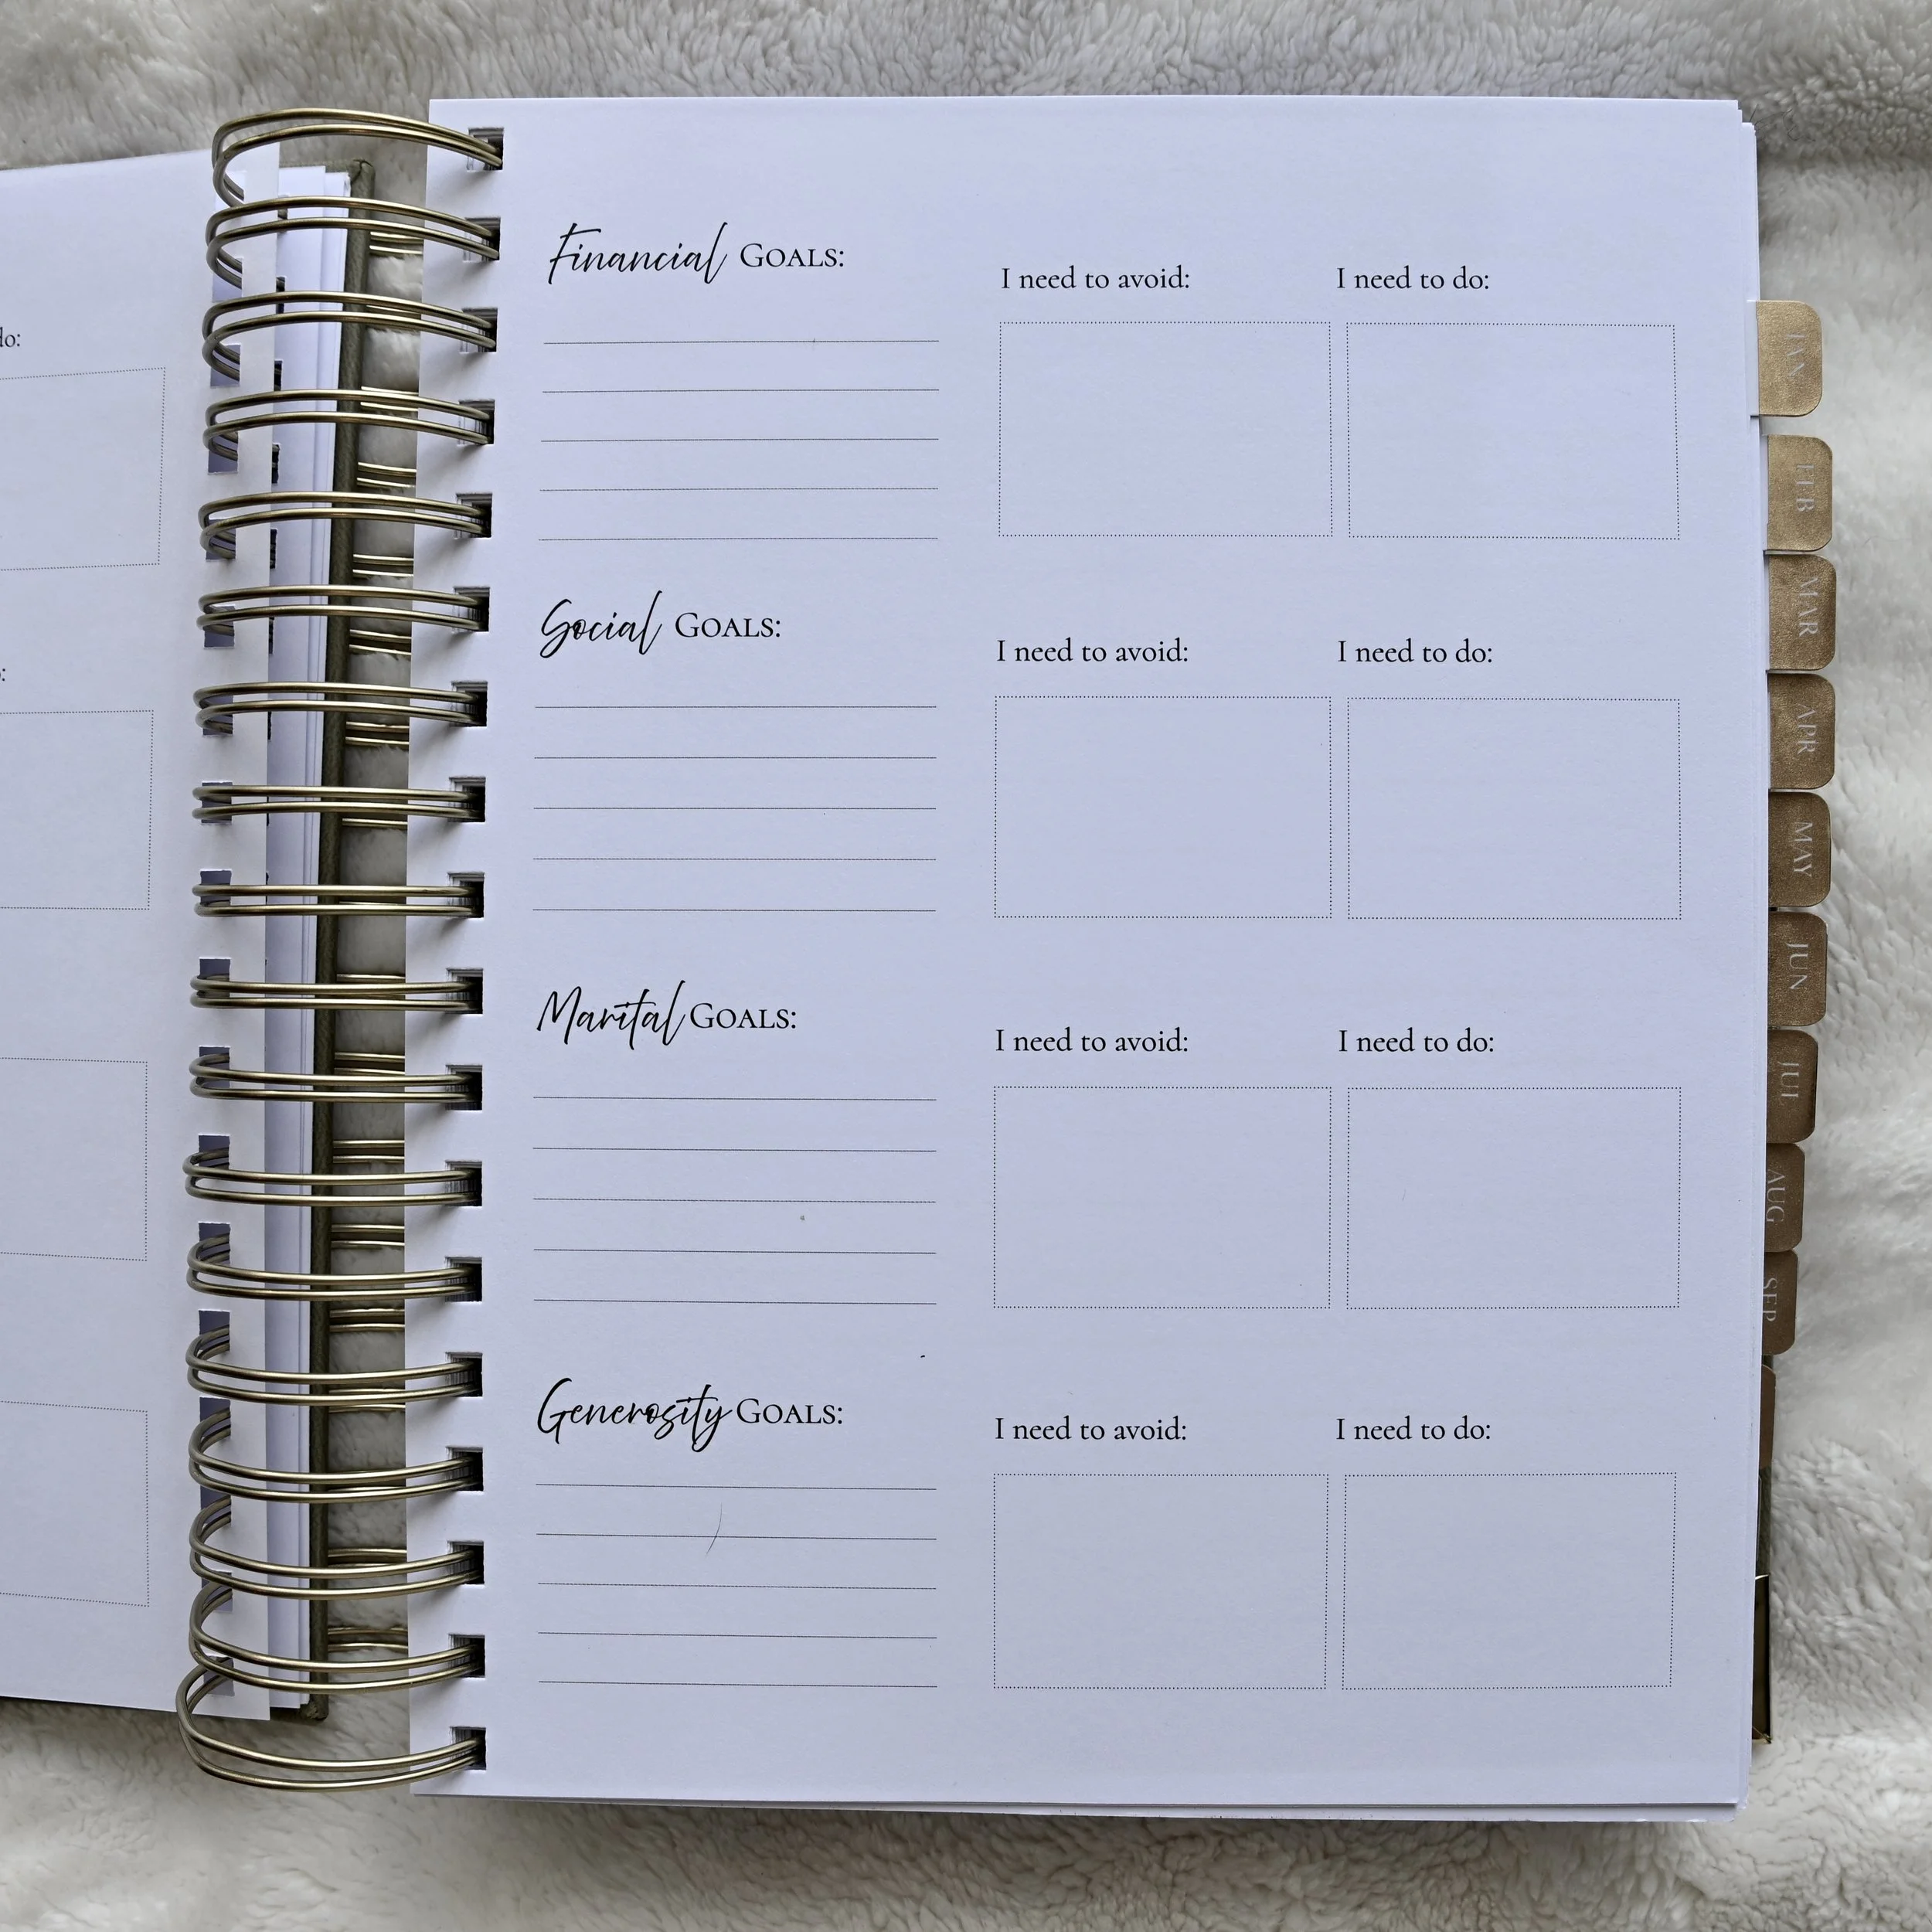 do:
Financial GOALS:
I need to avoid:
I need to do:
Social GOALS:
I need to avoid:
I need to do:
Marital GOALS:
I need to avoid:
I need to do:
Generosity GOALS:
I need to avoid:
I need to do:
JAN
FEB
MAR
APR
MAY
JUN
JUL
AUG
SEP